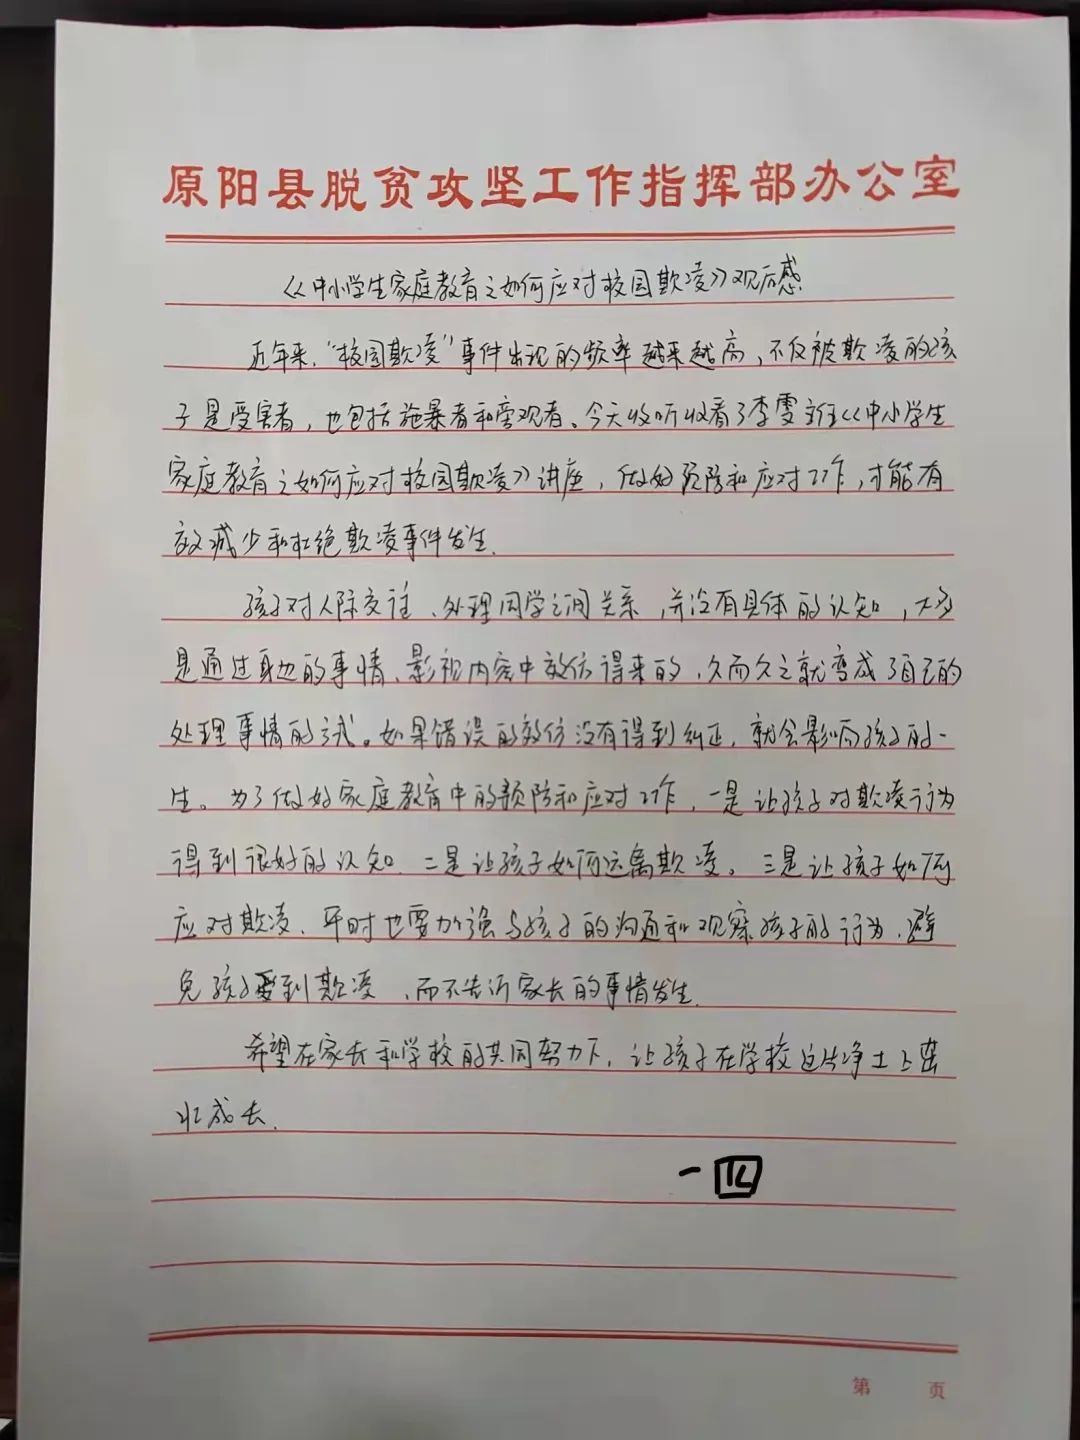 原阳县脱贫攻坚工作指挥部办公室
《中小学生家庭教育之如何应对校园欺凌》观后感
近年来，“校园欺凌”事件出现的频率越来越高，不仅被欺凌的孩
子是受害者，也包括施暴者和旁观者。今天收听收看了李雯主任《中小学生
家庭教育之如何应对校园欺凌》讲座，做好预防和应对工作，才能有
效减少和杜绝欺凌事件发生.
孩子对人际交往、处理同学之间关系，并没有具体的认知，大多
是通过身边的事情、影视内容中效仿得来的，久而久之就变成了自己的
处理事情的方式。如果错误的效仿没有得到纠正，就会影响孩子的一
生。为了做好家庭教育中的预防和应对工作，一是让孩子对欺凌行为
得到很好的认知.二是让孩子如何远离欺凌。三是让孩子如何
应对欺凌，平时也要加强与孩子的沟通和观察孩子的行为，避
免孩子受到欺凌，而不告诉家长的事情发生.
希望在家长和学校的共同努力下，让孩子在学校这片净土上茁
壮成长.
一四
第 页